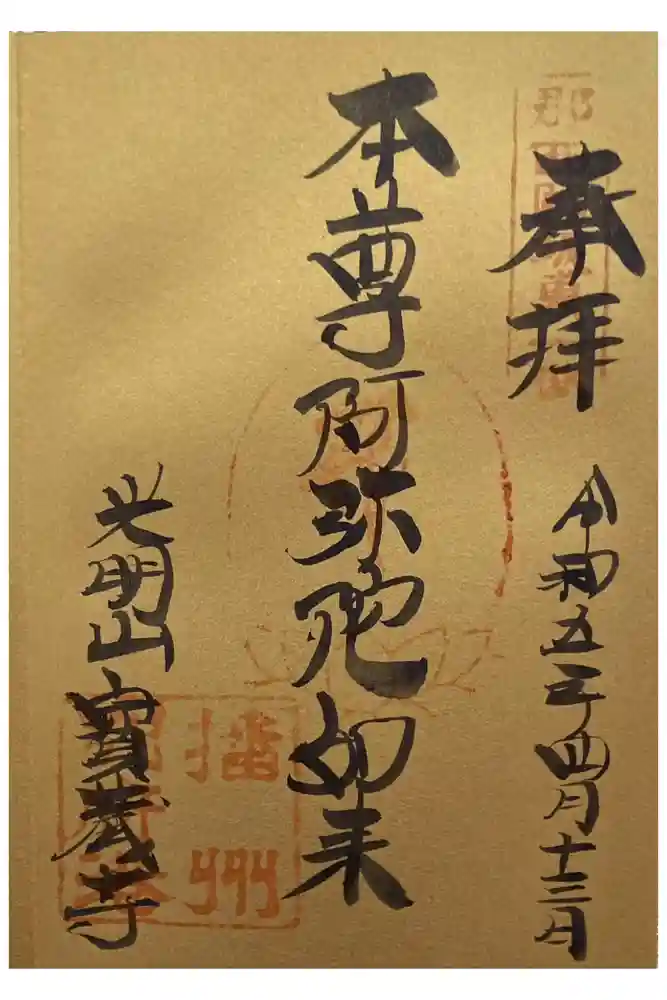 奉拝
令和五年四月十三日
本尊阿弥陀如来
光明山寳蔵寺
播州